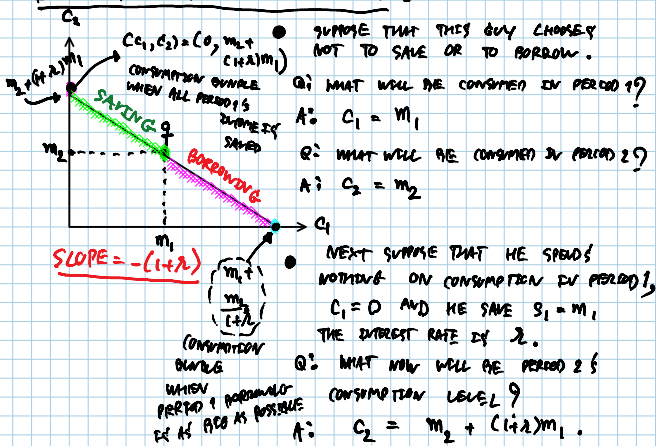 C₂
(C₁, C₂) = (0, m₂ + (1+r)m₁)
m₂ + (1+r)m₁
CONSUMPTION BUNDLE
WHEN ALL PERIOD 1'S
INCOME IS
SAVED
SAVING
BORROWING
m₂
m₁
C₁
SLOPE = -(1+r)
m₁ +
m₂
1+r
CONSUMPTION
BUNDLE
WHEN
PERIOD 1 BORROWING
IS AS BIG AS POSSIBLE
● SUPPOSE THAT THIS GUY CHOOSES
NOT TO SAVE OR TO BORROW.
Q: WHAT WILL BE CONSUMED IN PERIOD 1?
A: C₁ = m₁
Q: WHAT WILL BE CONSUMED IN PERIOD 2?
A: C₂ = m₂
● NEXT SUPPOSE THAT HE SPENDS
NOTHING ON CONSUMPTION IN PERIOD 1,
C₁ = 0 AND HE SAVE S₁ = m₁
THE INTEREST RATE IS r.
Q: WHAT NOW WILL BE PERIOD 2'S
CONSUMPTION LEVEL?
A: C₂ = m₂ + (1+r)m₁.